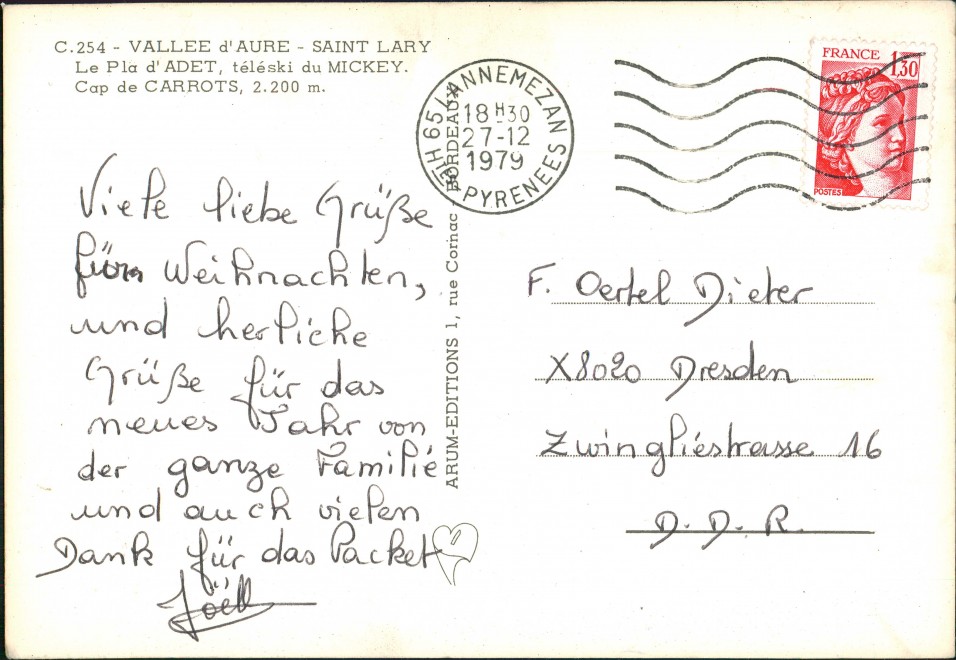 C.254 - VALLEE d'AURE - SAINT LARY
Le Pla d'ADET, téléski du MICKEY.
Cap de CARROTS, 2.200 m.
65 LANNEMEZAN
18 H 30
27-12
1979
HTES PYRENEES
FRANCE
1,30
POSTES
ARUM-EDITIONS 1, rue Cornac BORDEAUX
Viele liebe Grüße
für Weihnachten,
und herliche
Grüße für das
neues Jahr von
der ganze Familie
und auch vielen
Dank für das Packet
Joëll
F. Oertel Dieter
X8020 Dresden
Zwingliéstrasse 16
D. D. R.